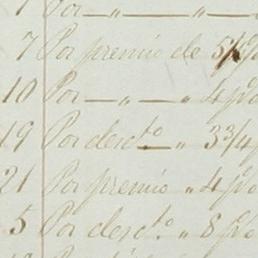 1 Por — „ — „ —
7 Por premio de 5¼ p%
10 Por — „ — „ 4 p%
19 Por desc.to „ 3¾ p
21 Por premio „ 4 p%
5 Por desc.to „ 8 p%